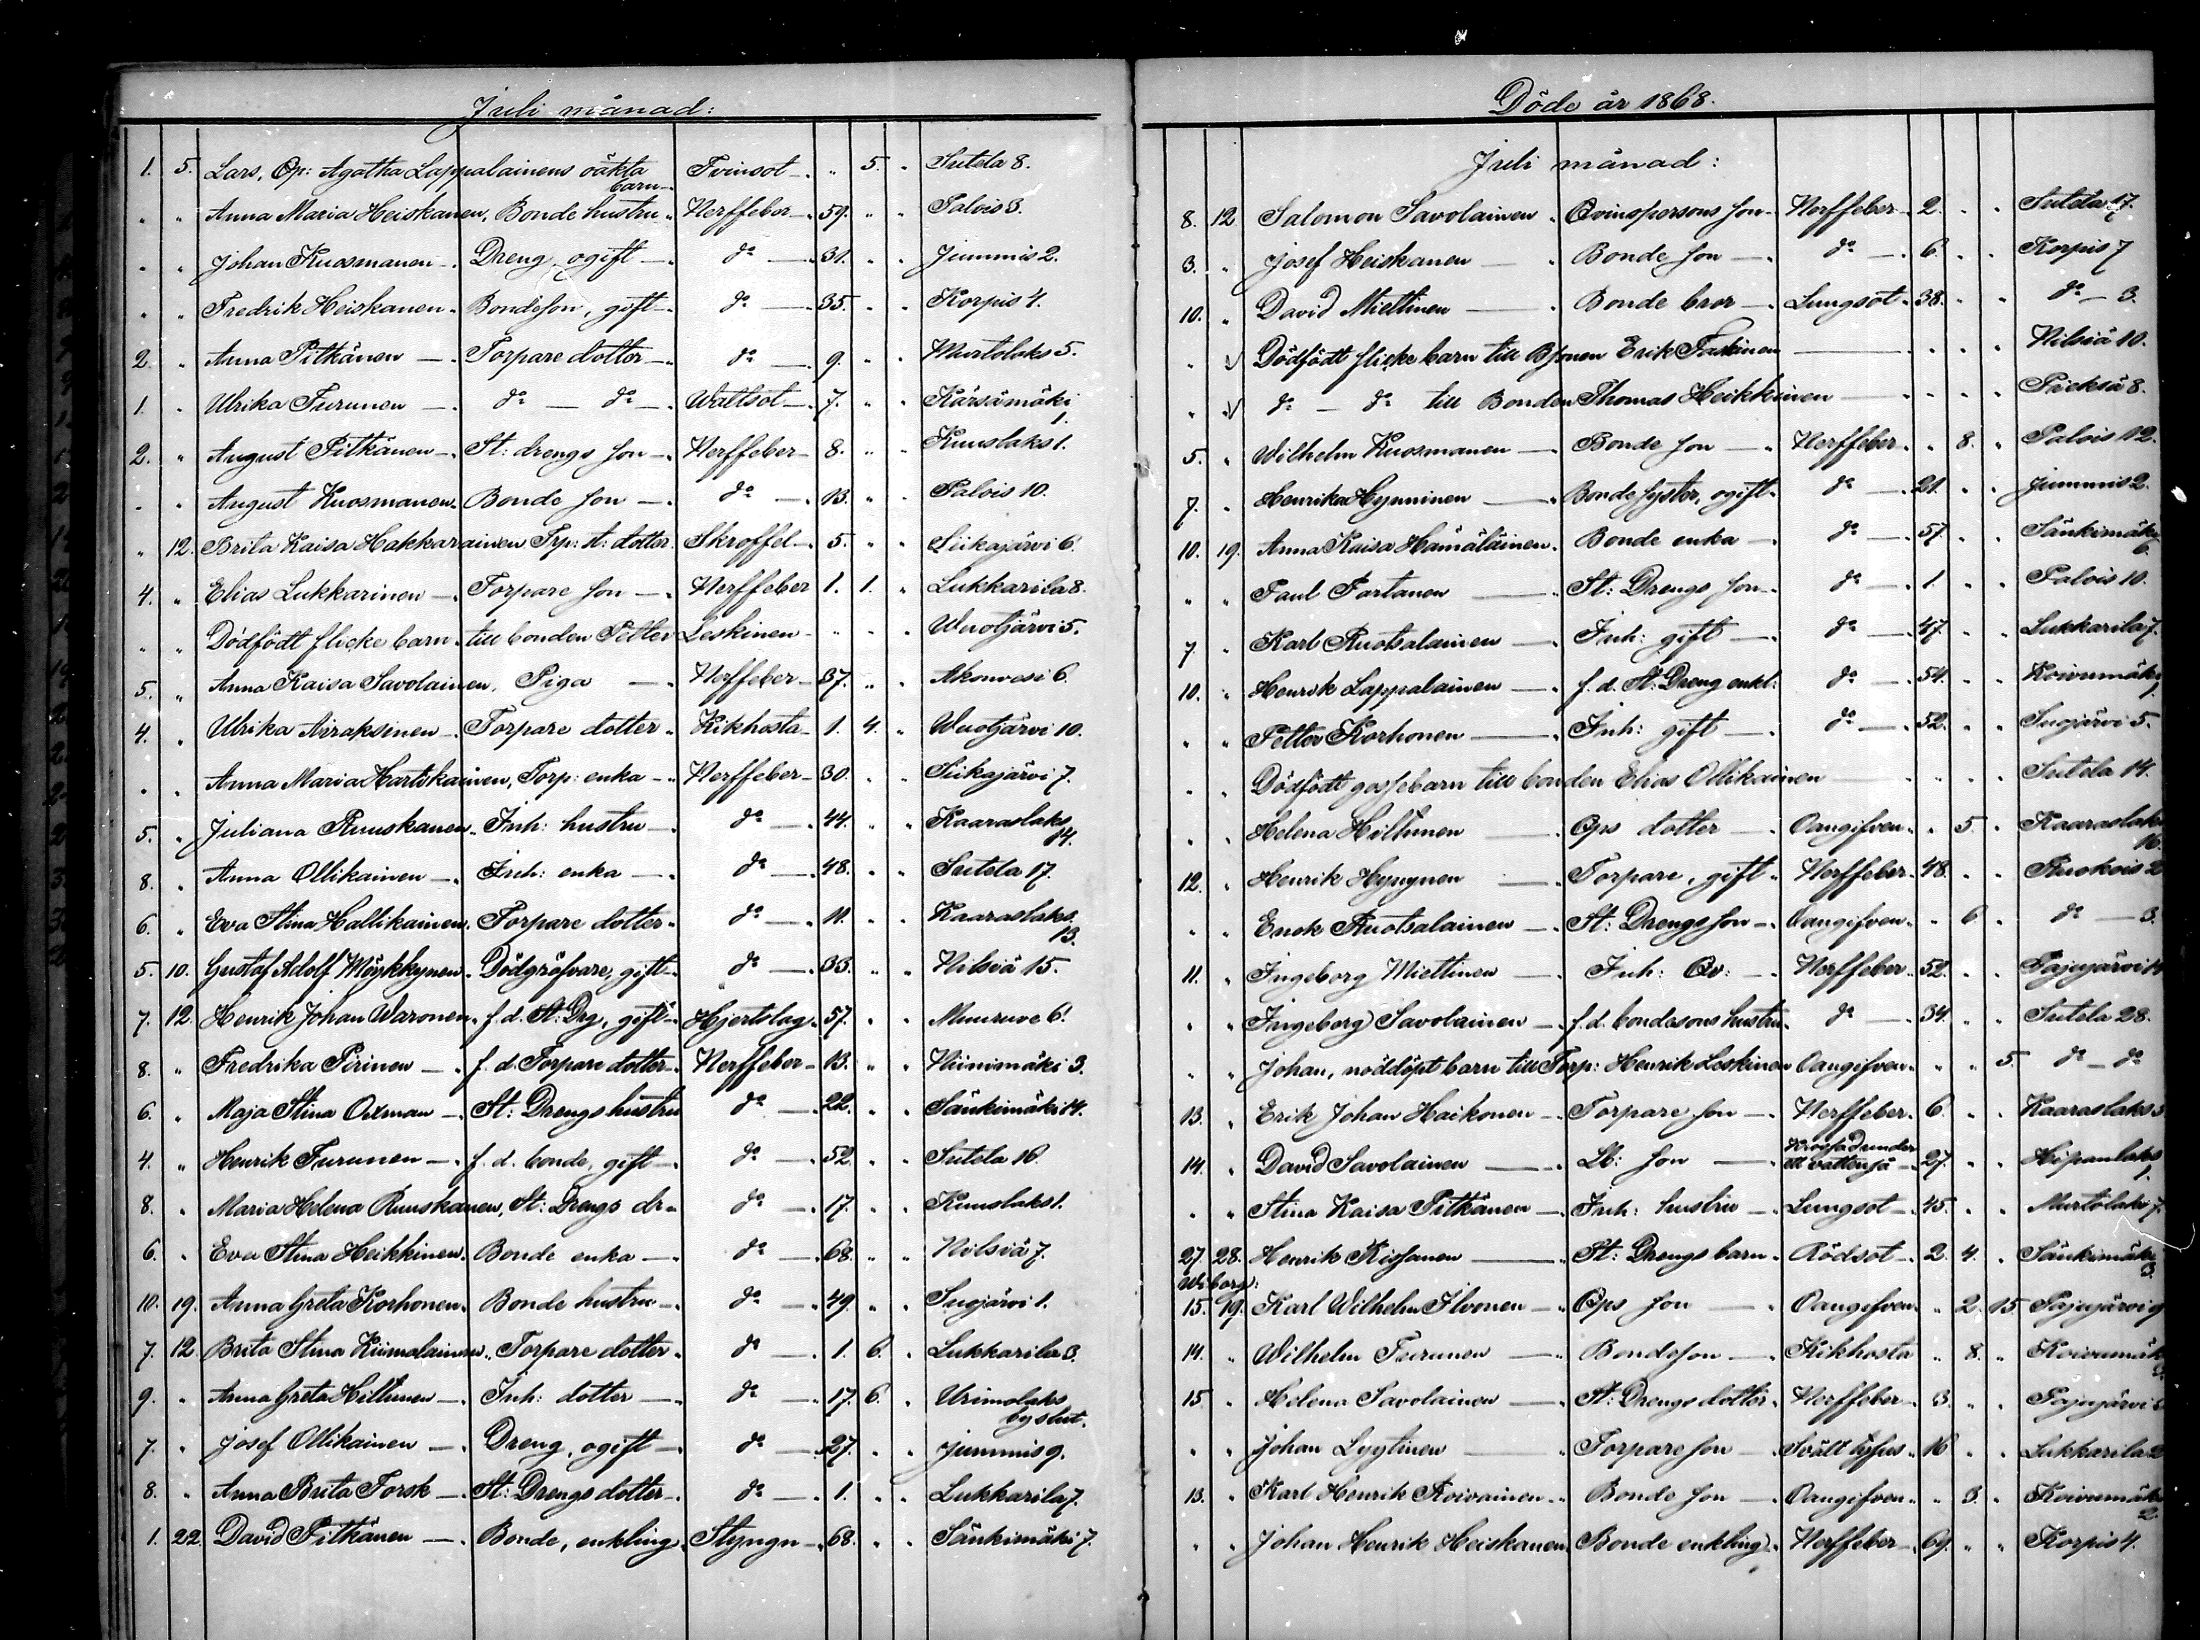 Juli månad:
1. 5. Lars, Qp: Agatha Lappalainens oäkta barn Tvinsot " 5. " Sutela 8.
" " Anna Maria Heiskanen, Bonde hustru Nerffeber 59. " " Palois 3.
" " Johan Kuosmanen Dreng, ogift do 31. " " Jummis 2.
" " Fredrik Heiskanen Bondeson, gift do 35. " " Korpis 4.
2. " Anna Pitkänen Torpare dotter do 9. " " Murtolaks 5.
1. " Ulrika Turunen do do Wattsot 7. " " Kärsämäki 1.
2. " August Pitkänen St: drengs son Nerffeber 8. " " Kuuslaks 1.
" " August Kuosmanen Bonde son do 13. " " Palois 10.
" 12. Brita Kaisa Hakkarainen Trp: dotter Skroffel 5. " " Siikajärvi 6.
4. " Elias Lukkarinen Torpare son Nerffeber 1. 1. " Lukkarila 8.
" " Dödfödt flicke barn till bonden Petter Leskinen " " " Wuotjärvi 5.
5. " Anna Kaisa Savolainen, Piga Nerffeber 37. " " Akonvesi 6.
4. " Ulrika Airaksinen Torpare dotter Kikhosta 1. 4. " Wuotjärvi 10.
" " Anna Maria Hartikainen, Torp: enka Nerffeber 30. " " Siikajärvi 7.
5. " Juliana Ruuskanen Inh: hustru do 44. " " Kaaraslaks 14.
8. " Anna Ollikainen Inh: enka do 48. " " Sutela 17.
6. " Eva Stina Hallikainen Torpare dotter do 11. " " Kaaraslaks 13.
5. 10. Gustaf Adolf Möykkynen Dödgräfvare, gift do 33. " " Nilsiä 15.
7. 12. Henrik Johan Waronen f.d. St: Drg, gift Hjertslag 57. " " Muuruve 6.
8. " Fredrika Pirinen f.d. Torpare dotter Nerffeber 13. " " Niinimäki 3.
6. " Maja Stina Oxman St: Drengs hustru do 22. " " Sänkimäki 14.
4. " Henrik Turunen f.d. bonde, gift do 52. " " Sutela 16.
8. " Maria Helena Ruuskanen, St: Drengs dr do 17. " " Kuuslaks 1.
6. " Eva Stina Heikkinen Bonde enka do 68. " " Nilsiä 7.
10. 19. Anna Greta Korhonen Bonde hustru do 49. " " Suojärvi 1.
7. 12. Brita Stina Kiimalainen Torpare dotter do 1. 6. " Lukkarila 3.
9. " Anna Greta Hiltunen Inh: dotter do 17. 6. " Urimolaks byslut.
7. " Josef Ollikainen Dreng, ogift do 27. " " Jummis 9.
8. " Anna Brita Torsk St: Drengs dotter do 1. " " Lukkarila 7.
1. 22. David Pitkänen Bonde, enkling Styngn 68. " " Sänkimäki 7.
Döde år 1868.
Juli månad:
8. 12. Salomon Savolainen Qvinspersons son Nerffeber 2. " " Sutela 17.
3. " Josef Heiskanen Bonde son do 6. " " Korpis 7
10. " David Miettinen Bonde bror Lungsot 38. " " do 3.
" " Dödfödt flicke barn till Bsonen Erik Taskinen " " " Nilsiä 10.
" " do do till Bonden Thomas Heikkinen " " " Pieksä 8.
5. " Wilhelm Kuosmanen Bonde son Nerffeber " 8. " Palois 12.
7. " Henrika Hynninen Bonde syster, ogift do 21. " " Jummis 2.
10. 19. Anna Kaisa Hämäläinen Bonde enka do 57. " " Sänkimäki 6.
" " Paul Partanen St: Drengs son do 1. " " Palois 10.
7. " Karl Ruotsalainen Inh: gift do 47. " " Lukkarila 7.
10. " Henrik Lappalainen f.d. St: Dreng enkl: do 54. " " Koivumäki 1.
" " Petter Korhonen Inh: gift do 52. " " Suojärvi 5.
" " Dödfödt gossebarn till bonden Elias Ollikainen " " " Sutela 14.
" " Helena Hiltunen Qps dotter Oangifven " 5. " Kaaraslaks 16.
12. " Henrik Hyyrynen Torpare, gift Nerffeber 48. " " Ruokois 2
" " Enok Ruotsalainen St: Drengs son Oangifven " 6. " do 3.
11. " Ingeborg Miettinen Inh: Qv: Nerffeber 52. " " Pajujärvi 14
" " Ingeborg Savolainen f.d. bondesons hustru do 34. " " Sutela 28.
" " Johan, nöddöpt barn till Torp: Henrik Leskinen Oangifven " " 5. do do
13. " Erik Johan Haikonen Torpare son Nerffeber 6. " " Kaaraslaks 3
14. " David Savolainen Lb: son Krossad under ett vatten 27. " " Hipanlaks 1.
" " Stina Kaisa Pitkänen Inh: hustru Lungsot 45. " " Murtolaks 7.
27. 28. Henrik Kissanen St: Drengs barn Rödsot 2. 4. " Sänkimäki 3.
Wiborg:
15. 19. Karl Wilhelm Ilvonen Qps son Oangifven " 2. 15. Pajujärvi 9
14. " Wilhelm Turunen Bondeson Kikhosta " 8. " Koivumäki
15. " Helena Savolainen St: Drengs dotter Nerffeber 3. " " Pajujärvi
" " Johan Lyytinen Torpare son Svält tyfus 16 " " Lukkarila 2
13. " Karl Henrik Roivainen Bonde son Oangifven " 3. " Koivumäki 2.
" " Johan Henrik Heiskanen Bonde enkling Nerffeber 69. " " Korpis 4.